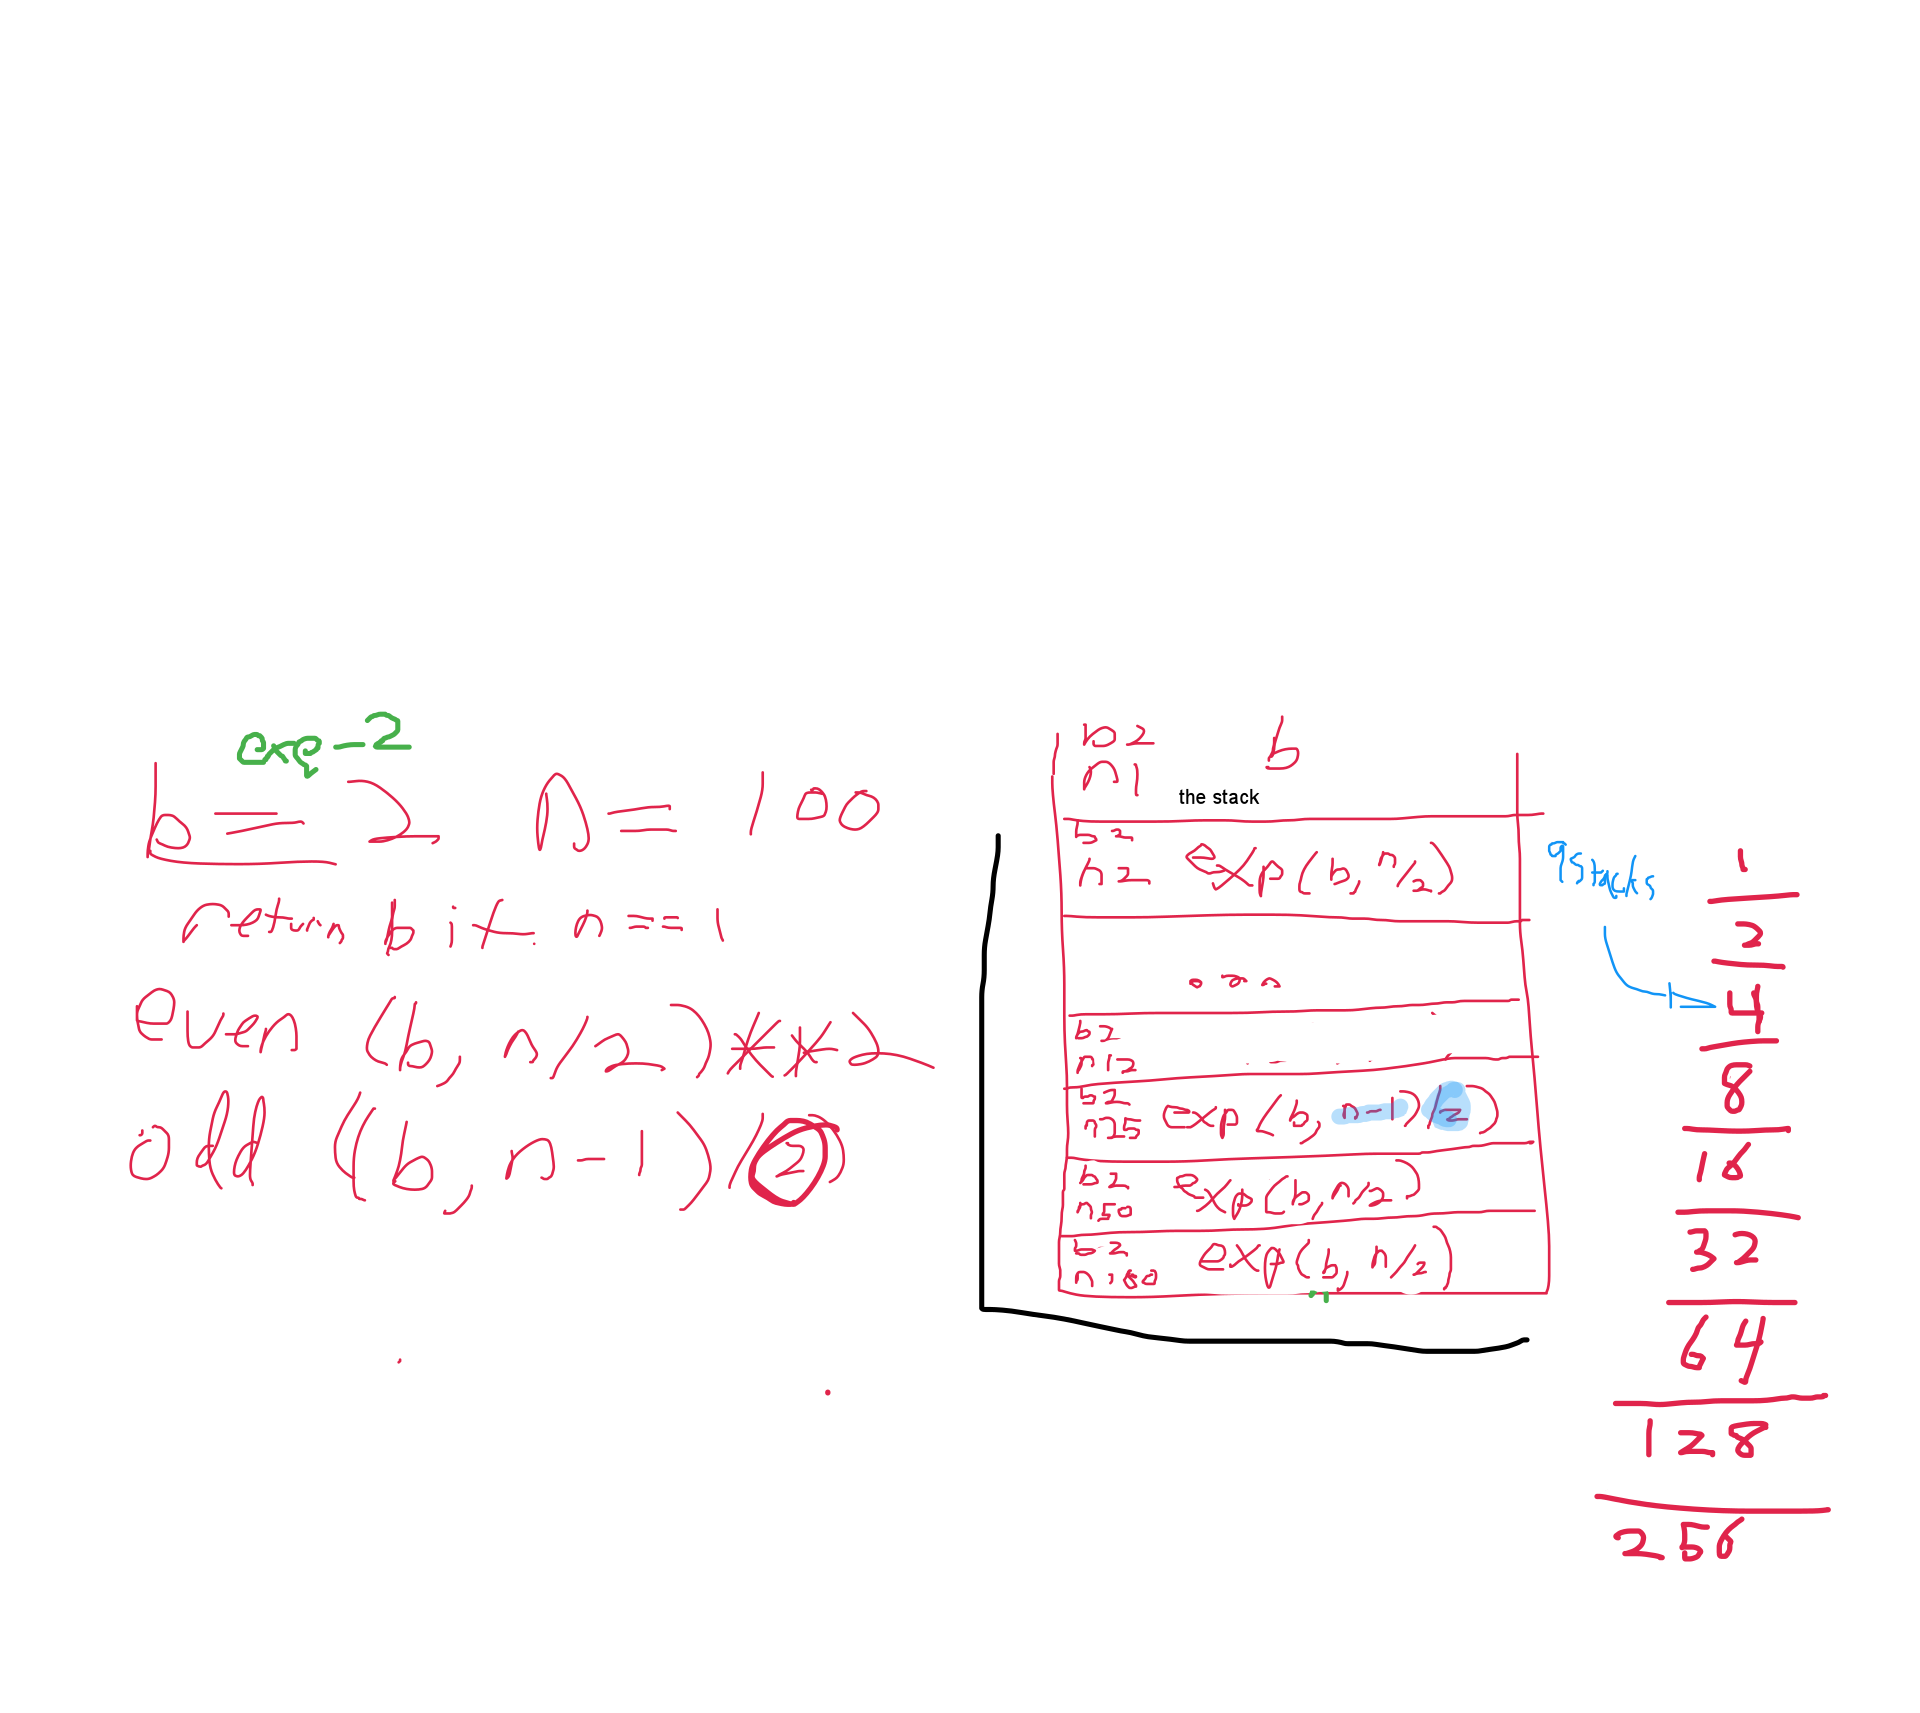 exp-2
b = 2 n = 100
return b if n == 1
even (b, n/2)**2
odd ((b, n-1)/2)
b2 b
n1
the stack
b2
n2 exp(b, n/2)
...
b2
n12
b2
n25 exp(b, n-1)/2)
b2
n50 exp(b, n/2)
b2
n100 exp(b, n/2)
9stacks
1
2
4
8
16
32
64
128
256